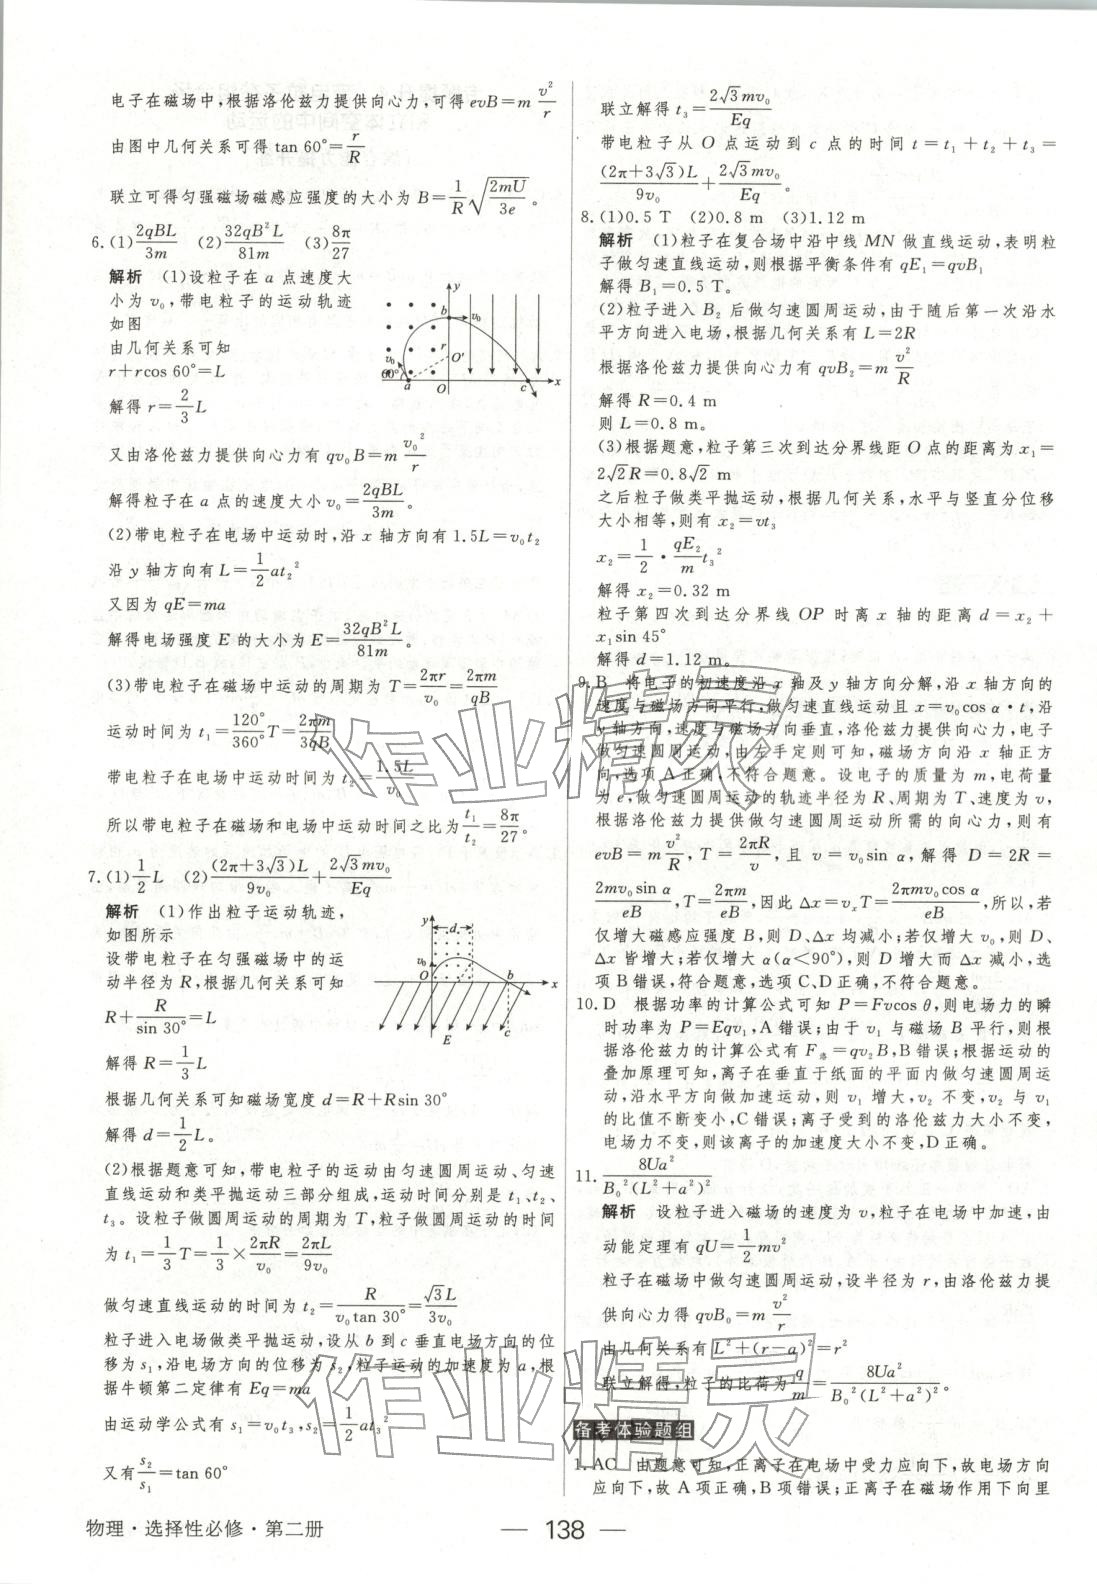 电子在磁场中,根据洛伦兹力提供向心力,可得 evB=m v²/r
由图中几何关系可得 tan 60°=r/R
联立可得匀强磁场磁感应强度的大小为 B=1/R √(2mU/3e)。
6.(1)2qBL/3m (2)32qB²L/81m (3)8π/27
解析 (1)设粒子在 a 点速度大
小为 v₀,带电粒子的运动轨迹
如图
由几何关系可知
r+rcos 60°=L
解得 r=2/3 L
y
b
v₀
r
O′
v₀
60°
a
O
c
x
又由洛伦兹力提供向心力有 qv₀B=m v₀²/r
解得粒子在 a 点的速度大小 v₀=2qBL/3m。
(2)带电粒子在电场中运动时,沿 x 轴方向有 1.5L=v₀t₂
沿 y 轴方向有 L=1/2 at₂²
又因为 qE=ma
解得电场强度 E 的大小为 E=32qB²L/81m。
(3)带电粒子在磁场中运动的周期为 T=2πr/v₀=2πm/qB
运动时间为 t₁=120°/360° T=2πm/3qB
带电粒子在电场中运动时间为 t₂=1.5L/v₀
所以带电粒子在磁场和电场中运动时间之比为 t₁/t₂=8π/27。
7.(1)1/2 L (2)(2π+3√3)L/9v₀+2√3mv₀/Eq
解析 (1)作出粒子运动轨迹,
如图所示
设带电粒子在匀强磁场中的运
动半径为 R,根据几何关系可知
R+R/sin 30°=L
解得 R=1/3 L
y
d
v₀
O
b
x
E
c
根据几何关系可知磁场宽度 d=R+Rsin 30°
解得 d=1/2 L。
(2)根据题意可知,带电粒子的运动由匀速圆周运动、匀速
直线运动和类平抛运动三部分组成,运动时间分别是 t₁、t₂、
t₃。设粒子做圆周运动的周期为 T,粒子做圆周运动的时间
为 t₁=1/3 T=1/3×2πR/v₀=2πL/9v₀
做匀速直线运动的时间为 t₂=R/(v₀tan 30°)=√3L/3v₀
粒子进入电场做类平抛运动,设从 b 到 c 垂直电场方向的位
移为 s₁,沿电场方向的位移为 s₂,粒子运动的加速度为 a,根
据牛顿第二定律有 Eq=ma
由运动学公式有 s₁=v₀t₃,s₂=1/2 at₃²
又有 s₂/s₁=tan 60°
联立解得 t₃=2√3mv₀/Eq
带电粒子从 O 点运动到 c 点的时间 t=t₁+t₂+t₃=
(2π+3√3)L/9v₀+2√3mv₀/Eq。
8.(1)0.5 T (2)0.8 m (3)1.12 m
解析 (1)粒子在复合场中沿中线 MN 做直线运动,表明粒
子做匀速直线运动,则根据平衡条件有 qE₁=qvB₁
解得 B₁=0.5 T。
(2)粒子进入 B₂ 后做匀速圆周运动,由于随后第一次沿水
平方向进入电场,根据几何关系有 L=2R
根据洛伦兹力提供向心力有 qvB₂=m v²/R
解得 R=0.4 m
则 L=0.8 m。
(3)根据题意,粒子第三次到达分界线距 O 点的距离为 x₁=
2√2R=0.8√2 m
之后粒子做类平抛运动,根据几何关系,水平与竖直分位移
大小相等,则有 x₂=vt₃
x₂=1/2·qE₂/m t₃²
解得 x₂=0.32 m
粒子第四次到达分界线 OP 时离 x 轴的距离 d=x₂+
x₁sin 45°
解得 d=1.12 m。
9.B 将电子的初速度沿 x 轴及 y 轴方向分解,沿 x 轴方向的
速度与磁场方向平行,做匀速直线运动且 x=v₀cos α·t,沿
y 轴方向,速度与磁场方向垂直,洛伦兹力提供向心力,电子
做匀速圆周运动,由左手定则可知,磁场方向沿 x 轴正方
向,选项 A 正确,不符合题意。设电子的质量为 m,电荷量
为 e,做匀速圆周运动的轨迹半径为 R、周期为 T、速度为 v,
根据洛伦兹力提供做匀速圆周运动所需的向心力,则有
evB=m v²/R,T=2πR/v,且 v=v₀sin α,解得 D=2R=
2mv₀sin α/eB,T=2πm/eB,因此 Δx=vₓT=2πmv₀cos α/eB,所以,若
仅增大磁感应强度 B,则 D、Δx 均减小;若仅增大 v₀,则 D、
Δx 皆增大;若仅增大 α(α<90°),则 D 增大而 Δx 减小,选
项 B 错误,符合题意,选项 C、D 正确,不符合题意。
10.D 根据功率的计算公式可知 P=Fvcos θ,则电场力的瞬
时功率为 P=Eqv₁,A 错误;由于 v₁ 与磁场 B 平行,则根
据洛伦兹力的计算公式有 F洛=qv₂B,B 错误;根据运动的
叠加原理可知,离子在垂直于纸面的平面内做匀速圆周运
动,沿水平方向做加速运动,则 v₁ 增大,v₂ 不变,v₂ 与 v₁
的比值不断变小,C 错误;离子受到的洛伦兹力大小不变,
电场力不变,则该离子的加速度大小不变,D 正确。
11.8Ua²/B₀²(L²+a²)²
解析 设粒子进入磁场的速度为 v,粒子在电场中加速,由
动能定理有 qU=1/2 mv²
粒子在磁场中做匀速圆周运动,设半径为 r,由洛伦兹力提
供向心力得 qvB₀=m v²/r
由几何关系有 L²+(r-a)²=r²
联立解得,粒子的比荷为 q/m=8Ua²/B₀²(L²+a²)²。
备考体验题组
1.AC 由题意可知,正离子在电场中受力应向下,故电场方向
应向下,故 A 项正确,B 项错误;正离子在磁场作用下向里
作业精灵
作业精灵
物理·选择性必修·第二册
— 138 —